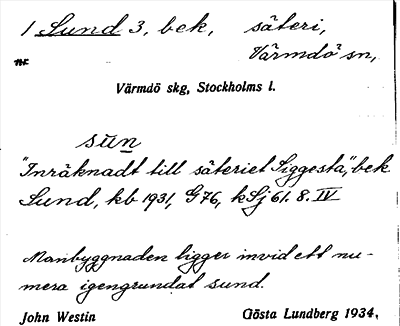 1 Sund 3, bek, säteri,
Värmdö sn,
nr
Värmdö skg, Stockholms l.
sun
"Inräknadt till säteriet Siggesta", bek
Sund, kb 1931, G76, kSj 61. 8. IV
Manbyggnaden ligger invid ett nu-
mera igengrundat sund.
John Westin Gösta Lundberg 1934,